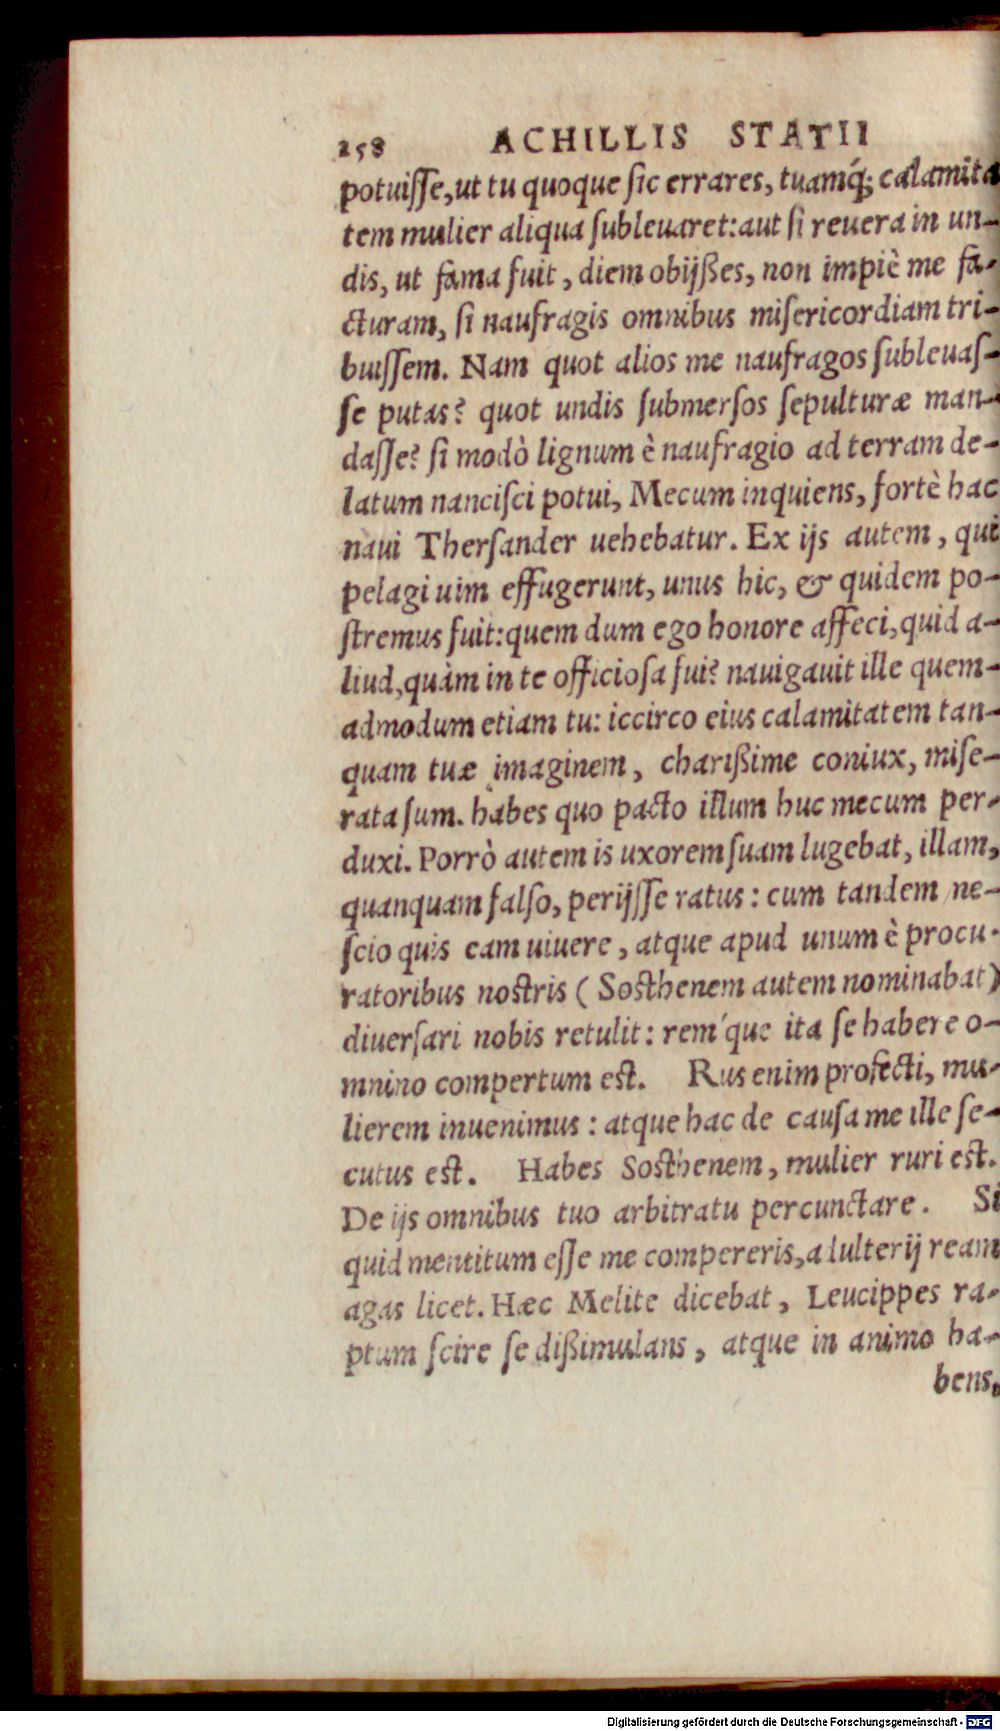 258 ACHILLIS STATII
potuiſſe, ut tu quoque ſic errares, tuamq́; calamita
tem mulier aliqua ſubleuaret: aut ſi reuera in un-
dis, ut fama fuit, diem obijßes, non impiè me fa-
cturam, ſi naufragis omnibus miſericordiam tri-
buiſſem. Nam quot alios me naufragos ſubleuaſ-
ſe putas? quot undis ſubmerſos ſepulturæ man-
daſſe? ſi modò lignum è naufragio ad terram de-
latum nanciſci potui, Mecum inquiens, fortè hac
naui Therſander uehebatur. Ex ijs autem, qui
pelagi uim effugerunt, unus hic, & quidem po-
ſtremus fuit: quem dum ego honore affeci, quid a-
liud, quàm in te officioſa fui? nauigauit ille quem-
admodum etiam tu: iccirco eius calamitatem tan-
quam tuæ imaginem, charißime coniux, miſe-
rata ſum. habes quo pacto illum huc mecum per-
duxi. Porrò autem is uxorem ſuam lugebat, illam,
quanquam falſo, perijſſe ratus: cum tandem ne-
ſcio quis eam uiuere, atque apud unum è procu-
ratoribus nostris (Sosthenem autem nominabat)
diuerſari nobis retulit: rem´que ita ſe habere o-
mnino compertum est. Rus enim profecti, mu-
lierem inuenimus: atque hac de cauſa me ille ſe-
cutus est. Habes Sosthenem, mulier ruri est.
De ijs omnibus tuo arbitratu percunctare. Si
quid mentitum eſſe me compereris, adulterij ream
agas licet. Hæc Melite dicebat, Leucippes ra-
ptum ſcire ſe dißimulans, atque in animo ha-
bens,
Digitalisierung gefördert durch die Deutsche Forschungsgemeinschaft - DFG